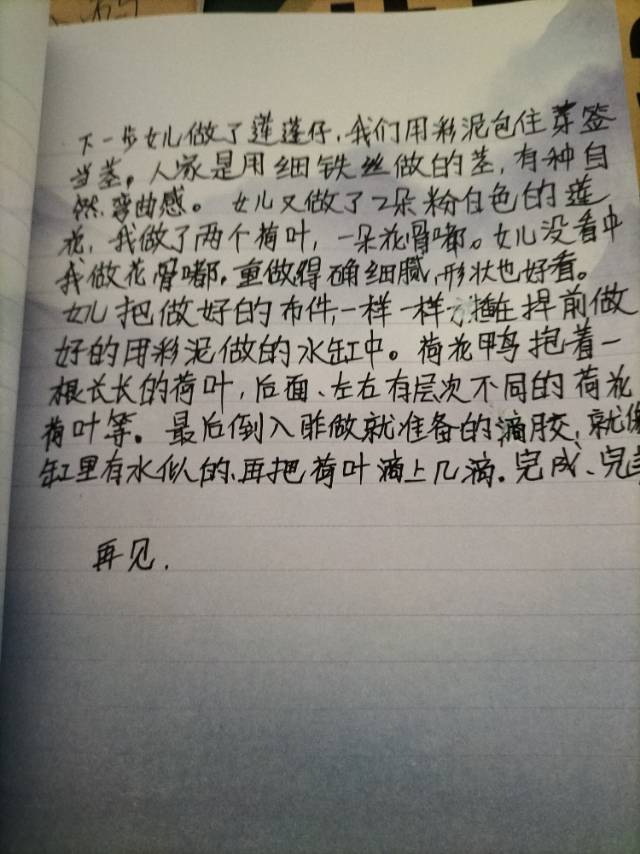 下一步女儿做了莲莲仔，我们用彩泥包住芽签
当茎。人家是用细铁丝做的茎，有种自
然弯曲感。女儿又做了2朵粉白色的莲
花，我做了两个荷叶，一朵花骨嘟。女儿没看中
我做花骨嘟，重做得确细腻，形状也好看。
女儿把做好的布件，一样一样插在提前做
好的用彩泥做的水缸中。荷花鸭抱着一
根长长的荷叶，后面、左右有层次不同的荷花
荷叶等。最后倒入早做就准备的滴胶，就像
缸里有水似的、再把荷叶滴上几滴。完成、完
再见．